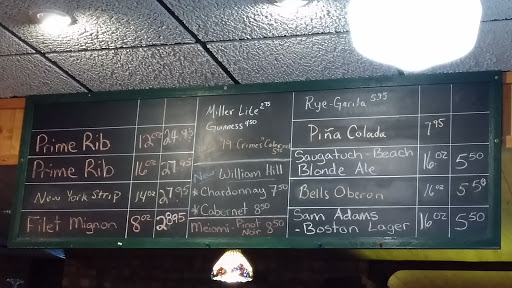 Prime Rib 12oz 24.95
Prime Rib 16oz 27.95
New York Strip 14oz 27.95
Filet Mignon 8oz 28.95
Miller Lite 2.75
Guinness 4.50
"19 Crimes" Cabernet
New William Hill
*Chardonnay 7.50
*Cabernet 8.50
Meiomi-Pinot
Noir
Rye-Garita 5.95
Piña Colada 7.95
Saugatuck-Beach
Blonde Ale 16oz 5.50
Bells Oberon 16oz 5.50
Sam Adams
-Boston Lager 16oz 5.50